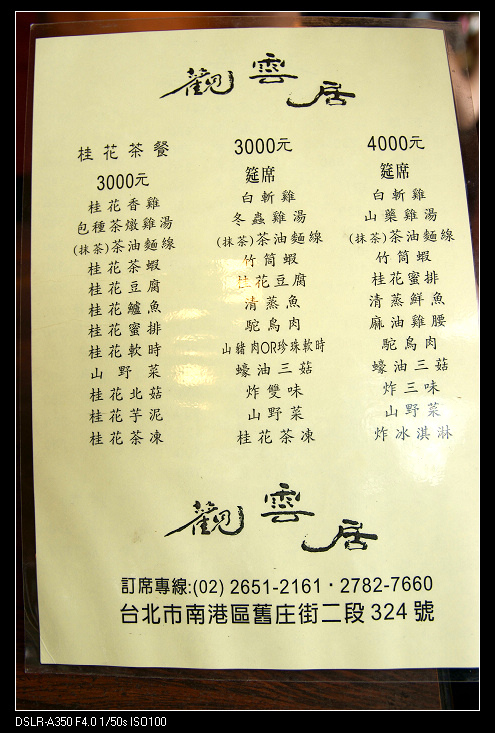 觀雲居
桂花茶餐
3000元
桂花香雞
包種茶燉雞湯
(抹茶)茶油麵線
桂花茶蝦
桂花豆腐
桂花鱸魚
桂花蜜排
桂花軟時
山野菜
桂花北菇
桂花芋泥
桂花茶凍
3000元
筵席
白斬雞
冬蟲雞湯
(抹茶)茶油麵線
竹筒蝦
桂花豆腐
清蒸魚
駝鳥肉
山豬肉OR珍珠軟時
蠔油三菇
炸雙味
山野菜
桂花茶凍
4000元
筵席
白斬雞
山藥雞湯
(抹茶)茶油麵線
竹筒蝦
桂花蜜排
清蒸鮮魚
麻油雞腰
駝鳥肉
蠔油三菇
炸三味
山野菜
炸冰淇淋
觀雲居
訂席專線:(02) 2651-2161 · 2782-7660
台北市南港區舊庄街二段324號
DSLR-A350 F4.0 1/50s ISO100